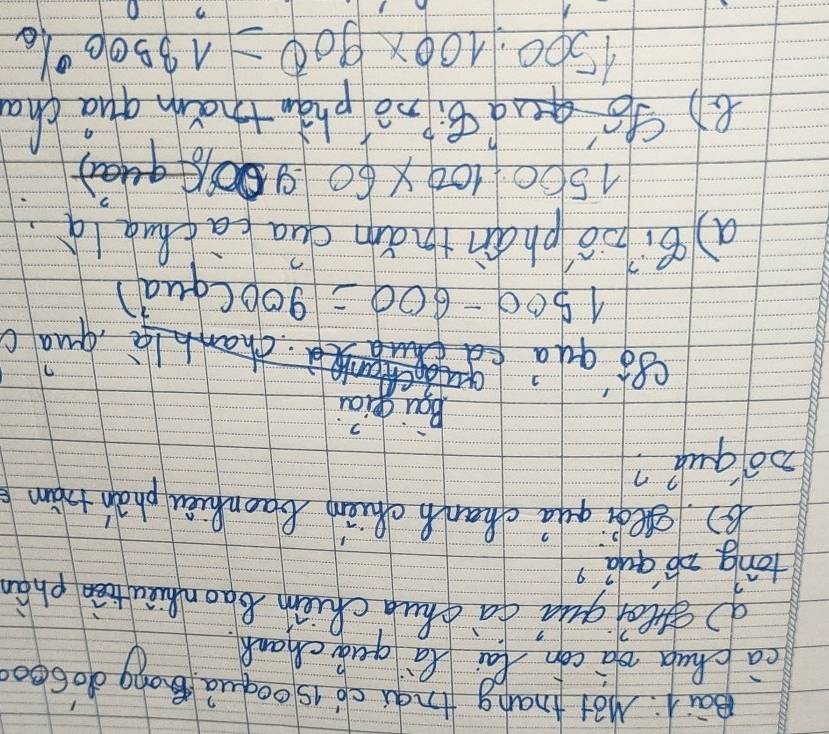 Bài 1: Một trang trại có 1500 quả trong đó 600
cà chua và còn lại là quả chanh
a) Hỏi quả cà chua chiếm bao nhiêu phần
tổng số quả?
b). Hỏi quả chanh chiếm bao nhiêu phần trăm
số quả?
Bài giải
Số quả cà chua là chanh là quả
1500 - 600 = 900 (quả)
a) Tỉ số phần trăm của cà chua là:
1500 : 100 x 60 900% quả)
b) Số quả Tỉ số phần trăm quả cha
1500 : 100 x 900 = 13500 %